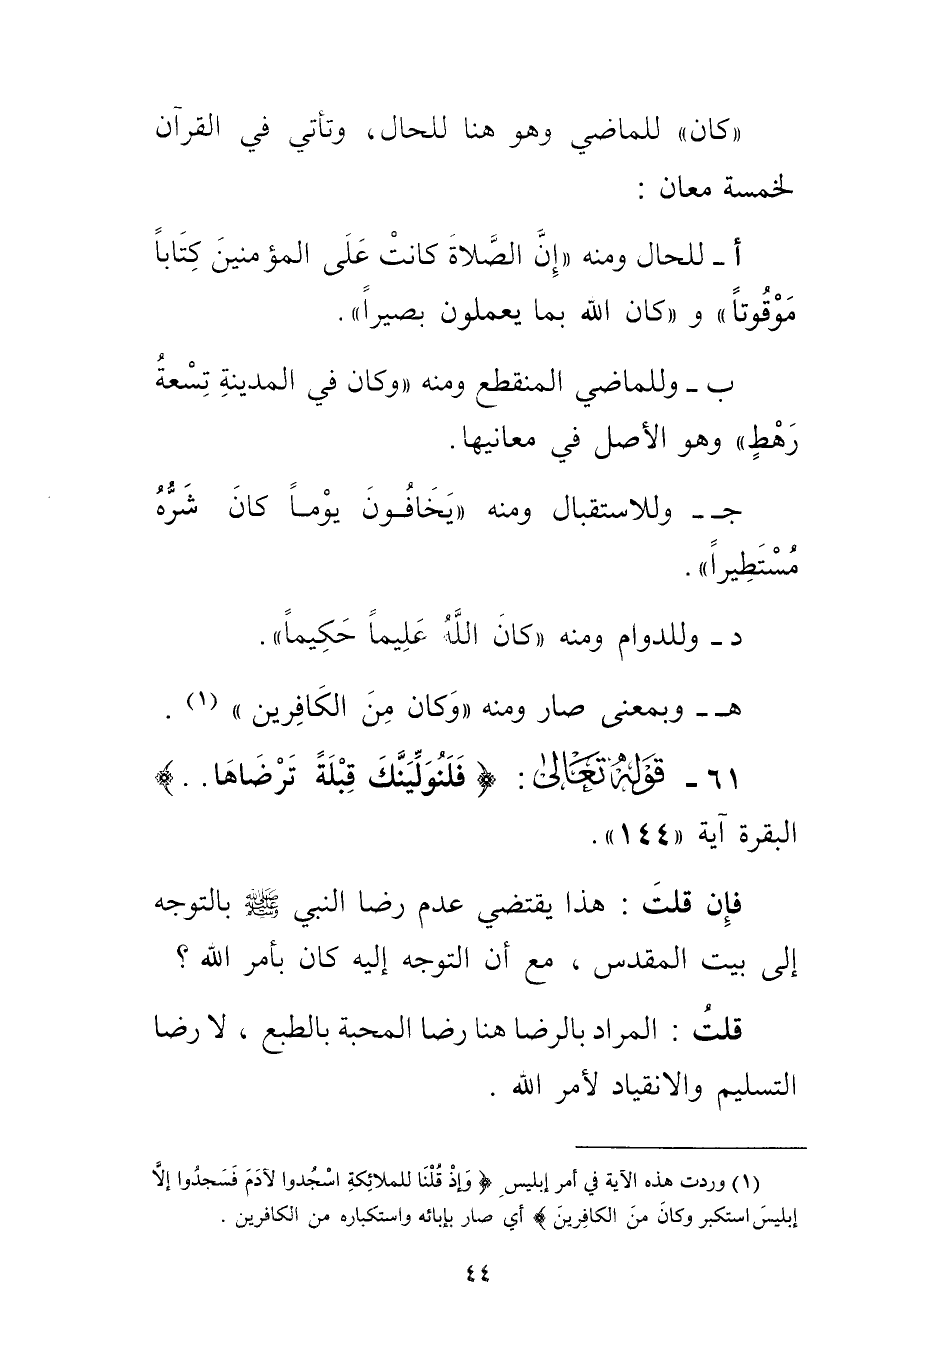 «كان» للماضي وهو هنا للحال، وتأتي في القرآن
لخمسة معان :
أ ـ للحال ومنه «إِنَّ الصَّلاةَ كانتْ عَلَى المؤمنينَ كِتَاباً
مَوْقُوتاً» و «كان الله بما يعملون بصيراً».
ب ـ وللماضي المنقطع ومنه «وكان في المدينةِ تِسْعةُ
رَهْطٍ» وهو الأصل في معانيها.
جـ ـ وللاستقبال ومنه «يَخَافُونَ يوْماً كانَ شَرُّهُ
مُسْتَطِيراً».
د ـ وللدوام ومنه «كانَ اللَّهُ عَلِيماً حَكِيماً».
هـ ـ وبمعنى صار ومنه «وَكان مِنَ الكَافِرين» (١) .
٦١ ـ قَوْلُهُ تَعَالَىٰ: ﴿ فَلَنُوَلِّيَنَّكَ قِبْلَةً تَرْضَاهَا. . ﴾
البقرة آية «١٤٤».
فإِن قلتَ : هذا يقتضي عدم رضا النبي ﷺ بالتوجه
إلى بيت المقدس ، مع أن التوجه إليه كان بأمر الله ؟
قلتُ : المراد بالرضا هنا رضا المحبة بالطبع ، لا رضا
التسليم والانقياد لأمر الله .
(١) وردت هذه الآية في أمر إبليس ﴿ وَإِذْ قُلْنَا للملائِكةِ اسْجُدوا لآدَمَ فَسَجدُوا إلَّا
إبليسَ استكبر وكانَ منَ الكافِرينَ ﴾ أي صار بإبائه واستكباره من الكافرين .
٤٤